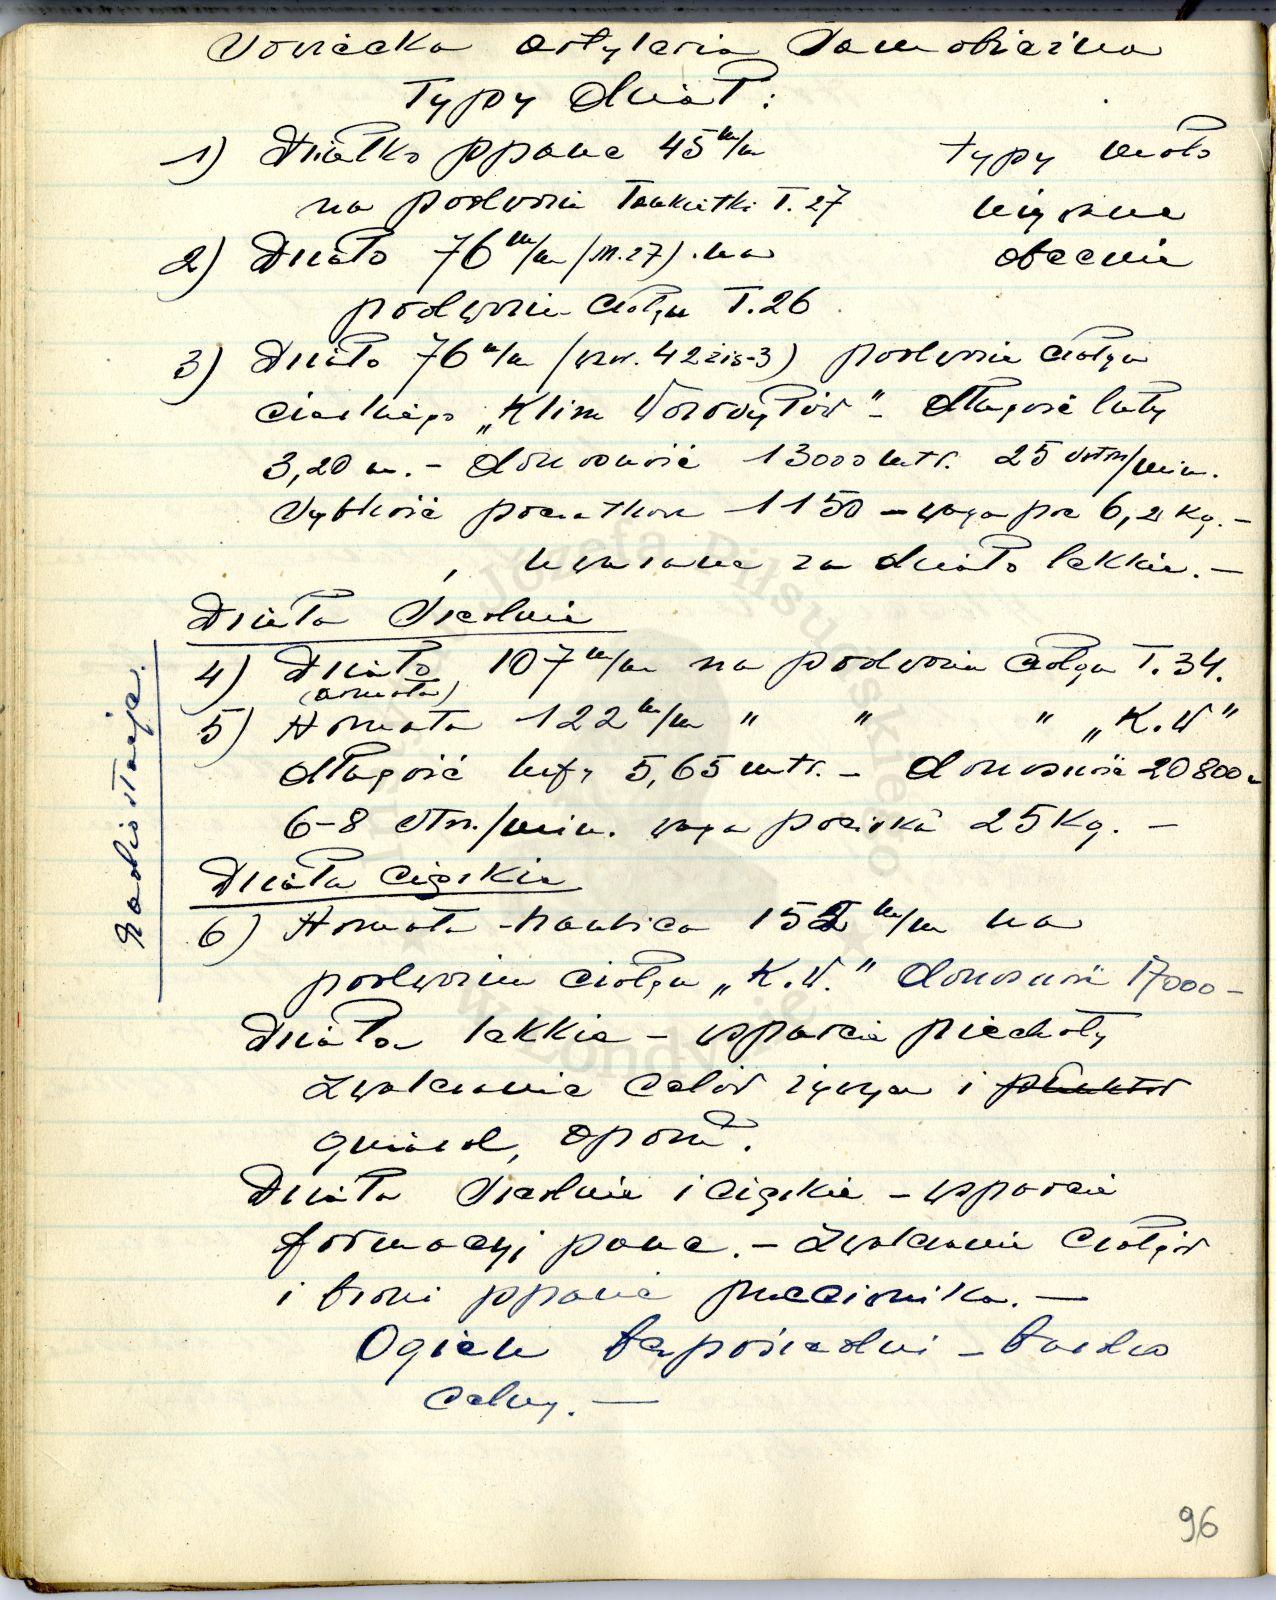 Sowiecka artyleria samobieżna
Typy dział:
1) Działko ppanc 45 m/m
na podwoziu Tankietki T.27
typy mało
używane
obecnie
2) Działo 76 m/m (M.27) na
podwoziu czołgu T.26
3) Działo 76 m/m (wzor. 42 zis-3) podwozie czołgu
ciężkiego „Klim Woroszyłow" – długość lufy
3,20 m. – donośność 13000 mtr. 25 strz/min.
Szybkość początkow 1150 – waga poc 6,2 kg. –
uważane za działo lekkie. –
Działa średnie
4) Działo 107 m/m na podwoziu czołgu T.34.
(armata)
5) Armata 122 m/m " " " „K.W"
długość lufy 5,65 mtr. – donośność 20800 m
6–8 strz./min. waga pocisku 25 Kg. –
Działa ciężkie
6) Armata-haubica 152 m/m na
podwoziu czołgu „K.W." donośność 17000 –
Działa lekkie – wsparcie piechoty
zwalczanie celów żywych i punktów
gniazd, oporu.
Działa średnie i ciężkie – wsparcie
formacyj panc. – zwalczanie czołgów
i broni ppanc przeciwnika. –
Ogień bezpośredni – bardzo
celny. –
Radiostacja.
96
Józefa Piłsudskiego
w Londynie